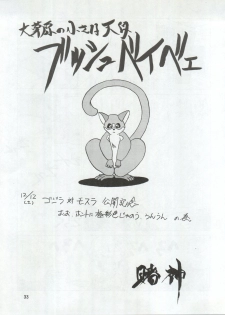 大草原の小さな天使
ブッシュベイベェ
12/12
(土) ゴジラ対モスラ 公開記念
おお、ホントに極彩色じゃのう、うんうん の巻
賭神